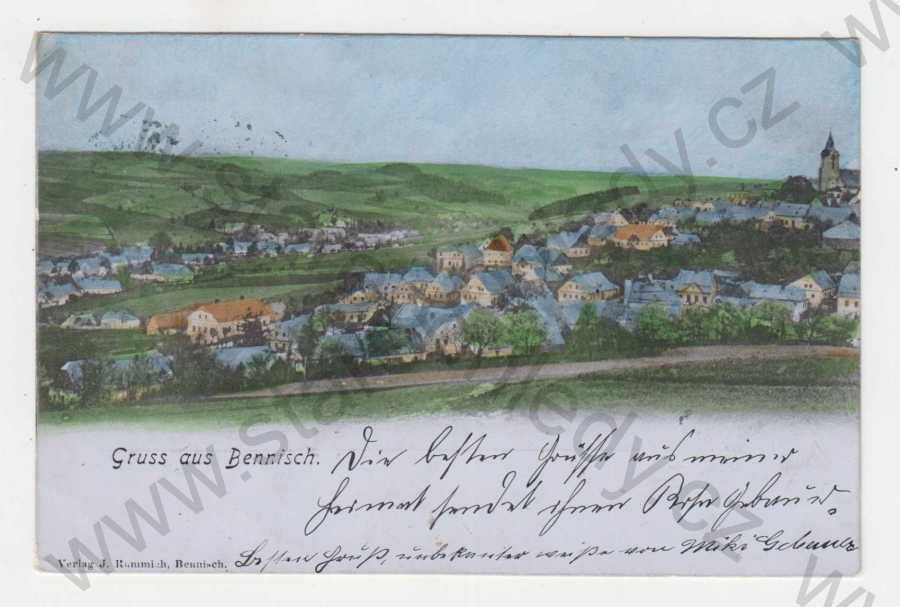 Gruss aus Bennisch.
Die besten Grüsse aus meiner
Heimat sendet Ihnen Rosa Gebauer
Besten Gruß, unbekanter weiße von Miki Gebauer
Verlag J. Rummich, Bennisch.